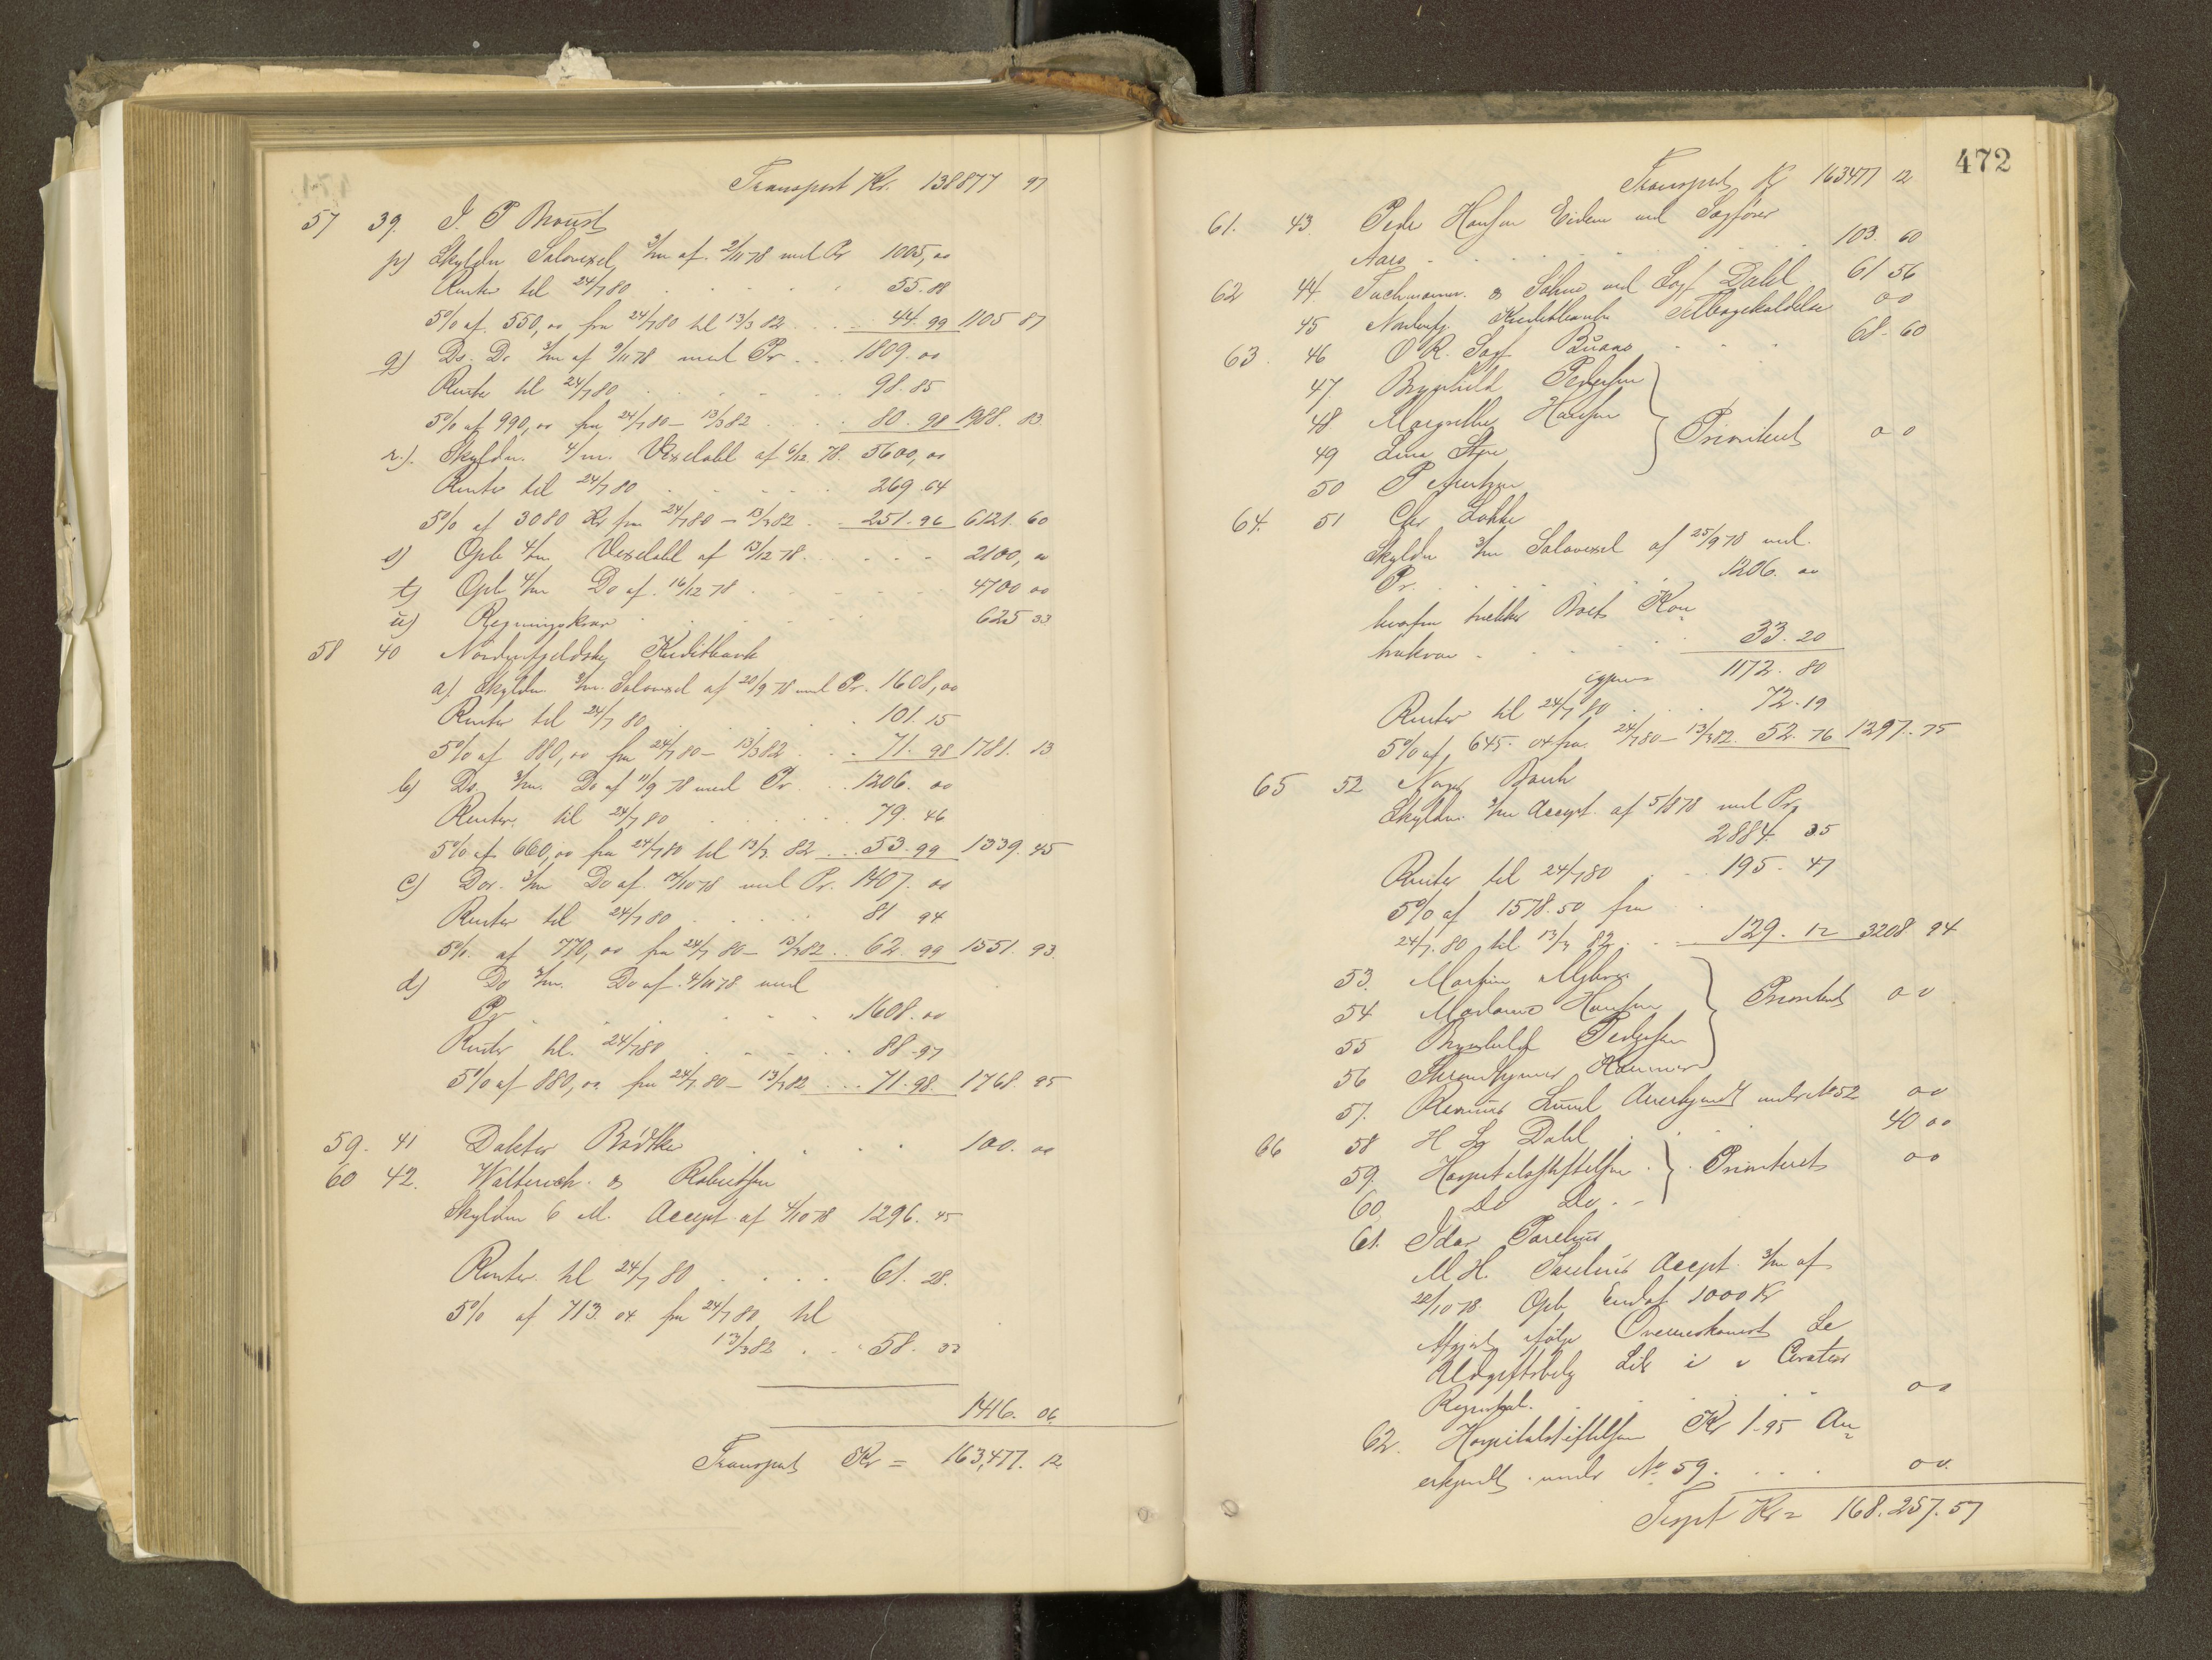 Transport Kr. 138877 97
57 39. I. P. Brousts
p) Skylder Solavexel 3/m af 2/11 78 med Pr 1005,00
Renter til 24/7 80 . . . . 55.88
5% af 550,00 fra 24/7 80 til 13/3 82 . . . 44.99 1105 87
q) Do. Do 3/m af 9/11 78 med Pr . . . 1809.00
Renter til 24/7 80 . . . . 98.85
5% af 990,00 fra 24/7 80 – 13/3 82 . . . 80.98 1988.83
r.) Skylder 4/m. Vexelobl af 6/12 78. 5600,00
Renter til 24/7 80 . . . . 269.64
5% af 3080 Kr fra 24/7 80 – 13/3 82 . . 251.96 6121.60
s) Opb 4/m Vexelobl af 13/12 78 . . . . 2100,00
t) Opb 4/m Do af 16/12 78 . . . . 4700 00
u) Regningskrav . . . . 625 33
58 40 Nordenfjeldske Kreditbank
a) Skylder 3/m. Solavexel af 20/9 78 med Pr. 1608,00
Renter til 24/7 80 . . . . 101.15
5% af 880,00 fra 24/7 80 – 13/3 82 . . . 71.98 1781.13
b) Do 3/m. Do af 11/9 78 med Pr . . . 1206.00
Renter til 24/7 80 . . . . 79.46
5% af 660,00 fra 24/7 80 til 13/3 82 . . . 53.99 1339.45
c) Do. 3/m Do af 7/10 78 med Pr. 1407.00
Renter til 24/7 80 . . . . 81 94
5% af 770,00 fra 24/7 80 – 13/3 82 . . 62.99 1551.93.
d) Do 3/m. Do af 4/11 78 med
Pr . . . . 1608.00
Renter til 24/7 80 . . . . 88.97
5% af 880,00 fra 24/7 80 – 13/3 82 . . . 71.98. 1768.95
59. 41 Doktor Bödtker . . . . 100.00
60 42. Walterech & Robertsen
Skylder 6 M. Accept af 4/10 78 1296.45
Renter til 24/7 80 . . . . 61.28.
5% af 713.04 fra 24/7 80 til
13/3 82 . . . 58.33
1416.06.
Transport Kr = 163,477.12.
472
Transport Kr 163477 12
61. 43. Peder Hansen Eidem ved Sagfører
Aars . . . . 103.60
62 44. Tuchmann & Sohne ved Sagf Dahl . 61 56
45 Nordenfj. Kreditbank Tilbagekaldelse 00
63. 46 O R. Sagf Buaas . . . 68.60
47. Brynhild Pedersen
48 Margrethe Hansen
49 Lina Stene
Prioriteret 00
50 P
64. 51 Chr Lökke
Skylder 3/m Solavexel af 25/9 78 med
Pr. . . . . 1206.00
hvorfra trækkes Boets Kon
trakrav . . . . 33.20
igjen 1172.80
Renter til 24/7 80 . . . 72.19
5% af 645.04 fra 24/7 80 – 13/3 82. 52.76 1297.75
65 52 Norges Bank
Skylder 3/m Accept af 5/8 78 med Pr.
2884.35
Renter til 24/7 80 . . . 195.47
5% af 1578.50 fra
24/7 80 til 13/3 82 . . . 129.12 3208 94
53. Martin
54 Hansen
55 Brynhild Pedersen
Prioriteret 00
56
57. Rasmus Lund Anerkjendt under No 52 00
66 58 H Sg Dahl . . . 40 00
59. Hospitalsstiftelsen . Prioriteret 00
60. Do Do . –
61. Idar Parelius
M H. Parelius Accept 3/m af
22/10 78 Opb 1000 Kr
Afgjort ifølge Overenskomst Se
Udgiftsbilag Litr i v Curators
Regnskab. . . . 00
62. Hospitalsstiftelsen Kr 1.95 An
erkjendt under No 59. . . . 00.
Trspt Kr = 168.257.57